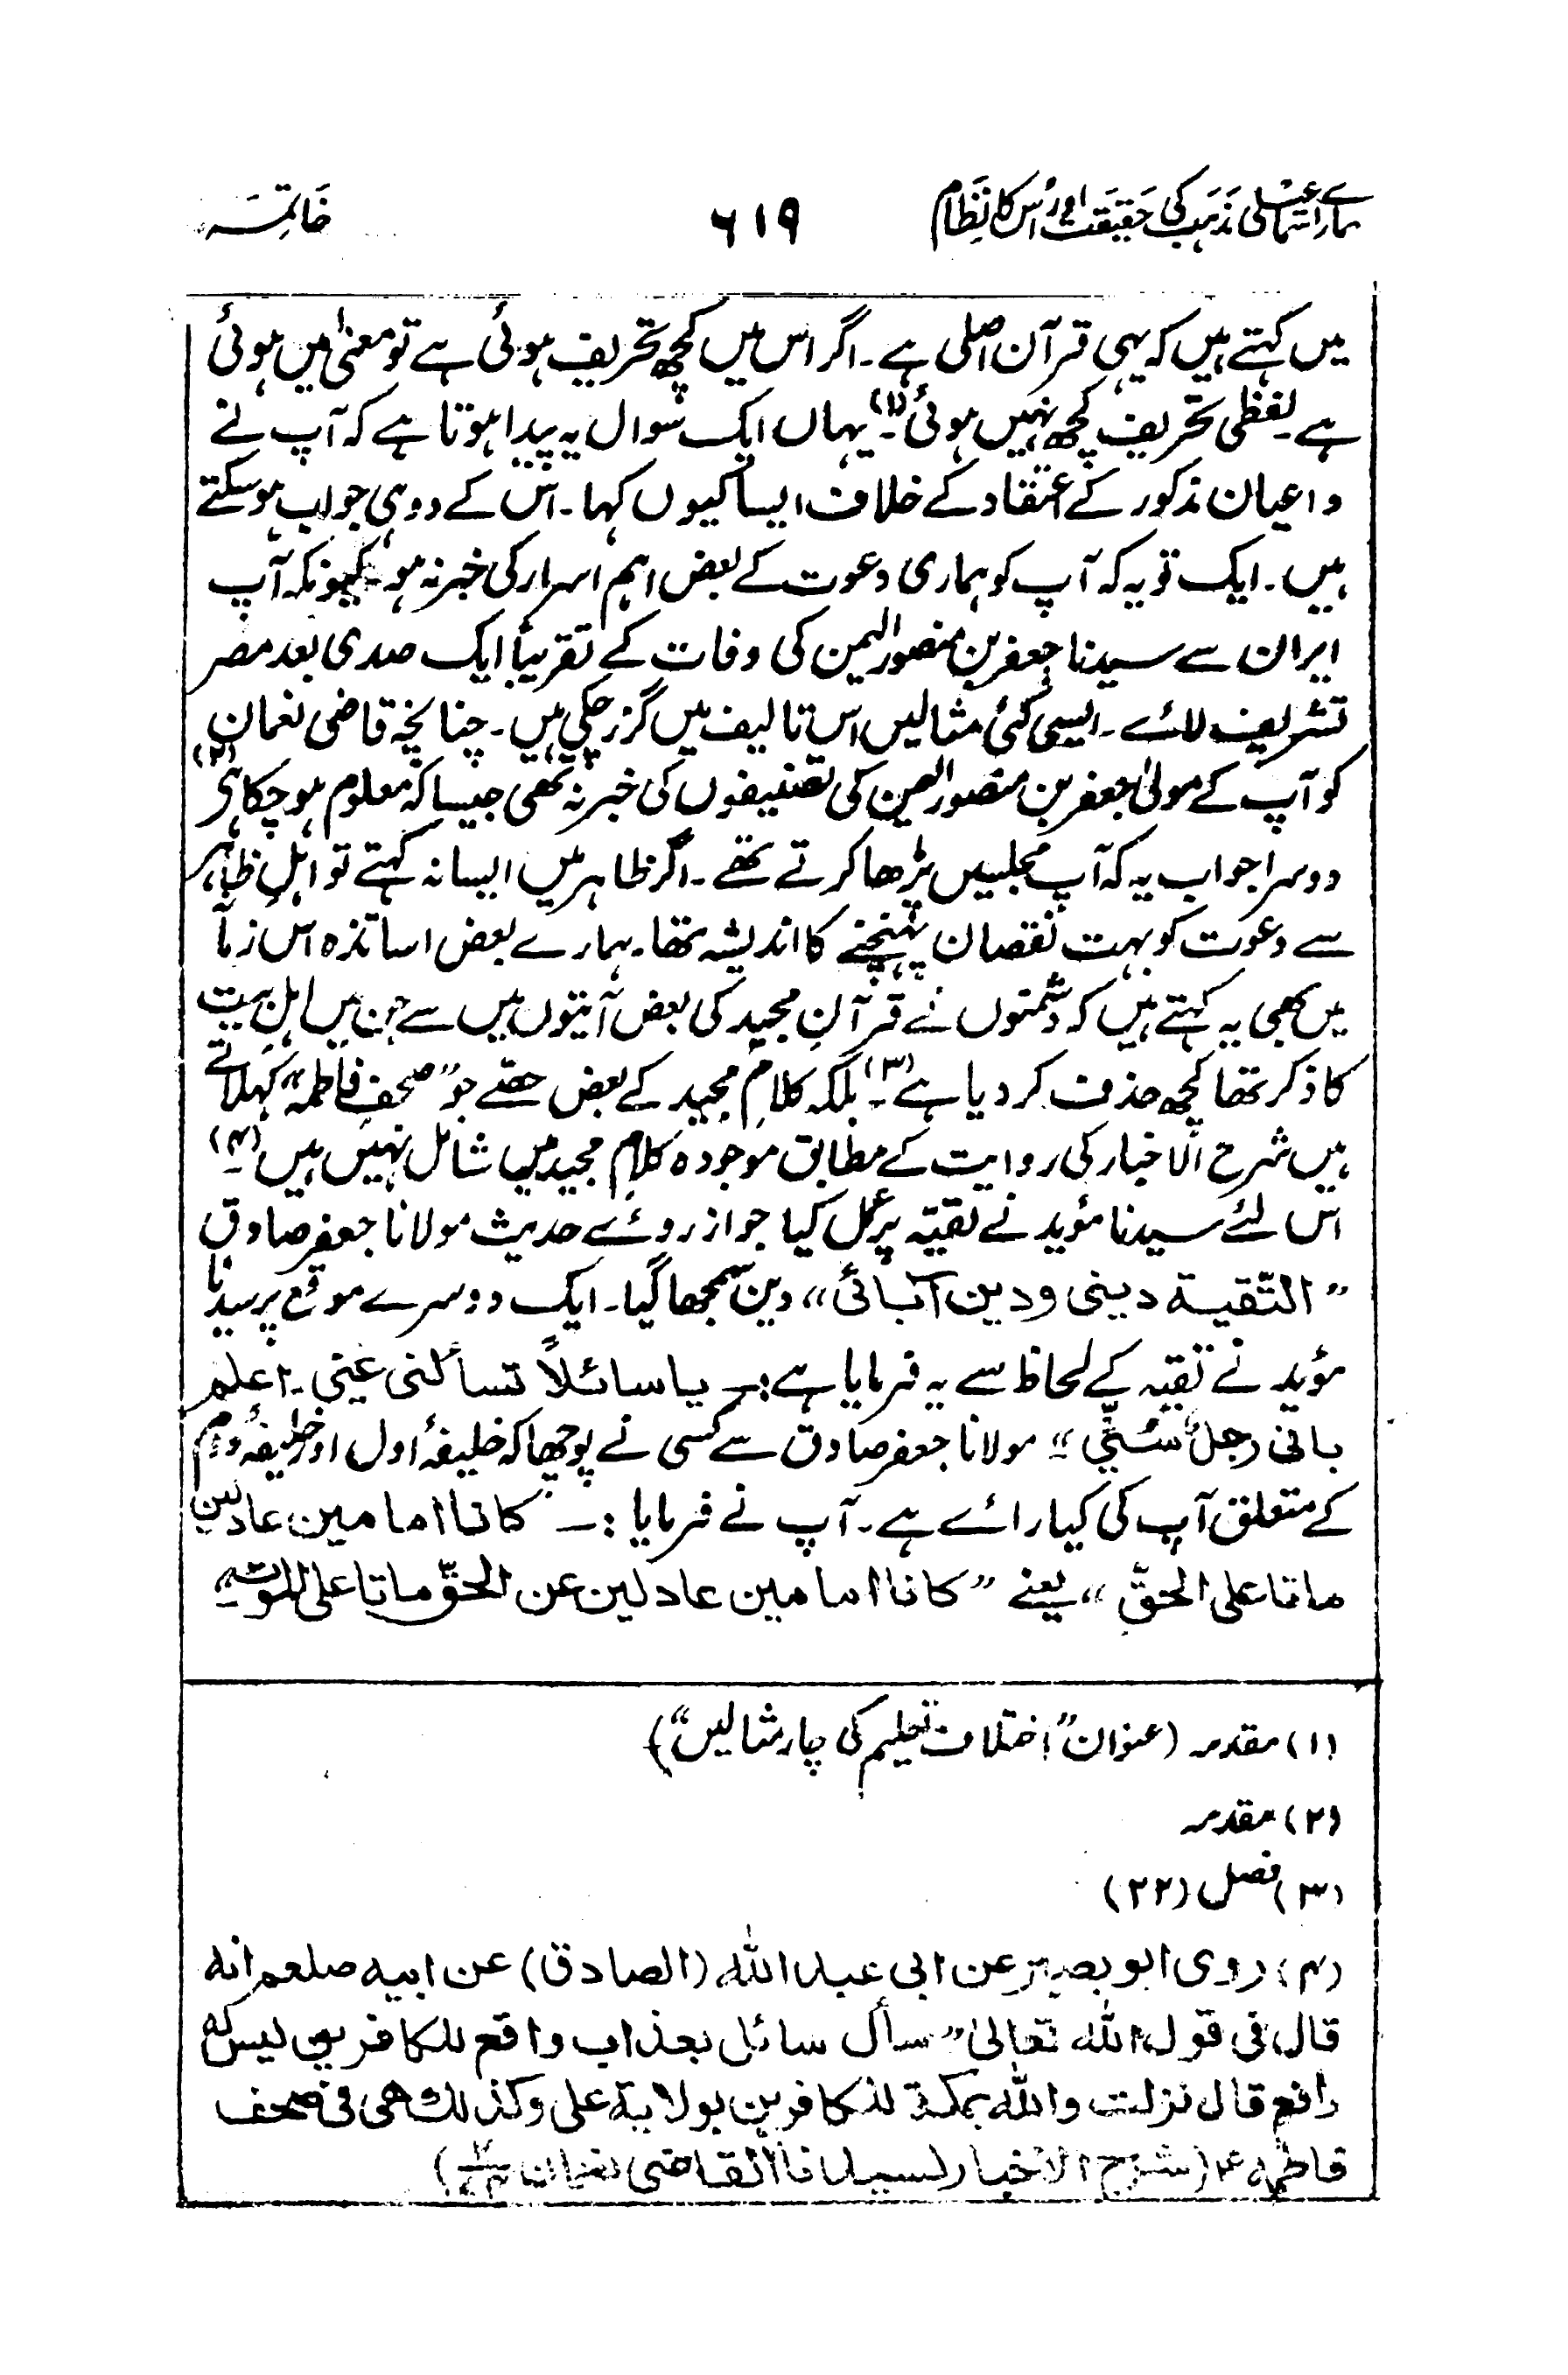 ہمارے اسماعیلی مذہب کی حقیقت اور اُس کا نِظَام ۶۱۹ خَاتِمَہ
میں کہتے ہیں کہ یہی قرآن اصلی ہے۔ اگر اس میں کچھ تحریف ہوئی ہے تو معنیٰ میں ہوئی
ہے لفظی تحریف کچھ نہیں ہوئی۔(۱) یہاں ایک سوال یہ پیدا ہوتا ہے کہ آپ نے
داعیان مذکور کے اعتقاد کے خلاف ایسا کیوں کہا۔ اس کے دو ہی جواب ہو سکتے
ہیں۔ ایک تو یہ کہ آپ کو ہماری دعوت کے بعض اہم اسرار کی خبر نہ ہو۔ کیونکہ آپ
ایران سے سیدنا جعفر بن منصور الیمن کی وفات کے تقریباً ایک صدی بعد مصر
تشریف لائے۔ ایسی کئی مثالیں اس تالیف میں گزر چکی ہیں۔ چنانچہ قاضی نعمان
کو آپ کے مولیٰ جعفر بن منصور الیمن کی تصنیفوں کی خبر نہ تھی جیسا کہ معلوم ہو چکا ہی(۲)
دوسرا جواب یہ کہ آپ مجلسیں پڑھا کرتے تھے۔ اگر ظاہر میں ایسا نہ کہتے تو اہلِ ظاہر
سے دعوت کو بہت نقصان پہنچنے کا اندیشہ تھا۔ ہمارے بعض اساتذہ اس زما
میں بھی یہ کہتے ہیں کہ دشمنوں نے قرآنِ مجید کی بعض آیتوں میں سے جن میں اہلِ بیت
کا ذکر تھا کچھ حذف کر دیا ہے۔(۳) بلکہ کلامِ مجید کے بعض حصّے جو ”صحف فاطمہ“ کہلاتے
ہیں شرح الاخبار کی روایت کے مطابق موجودہ کلامِ مجید میں شامل نہیں ہیں۔(۴)
اس لئے سیدنا مؤید نے تقیّہ پر عمل کیا جو از روئے حدیث مولانا جعفر صادق
”التّقیة دینی ودین آبائی“ دین سمجھا گیا۔ ایک دوسرے موقع پر سیدنا
مؤید نے تقیہ کے لحاظ سے یہ فرمایا ہے:۔ یا سائلاً تسألنی عنی۔ اعلم
بانی رجلٌ سُنّیّ“۔ مولانا جعفر صادق سے کسی نے پوچھا کہ خلیفۂ اول اور خلیفۂ دوم
کے متعلق آپ کی کیا رائے ہے۔ آپ نے فرمایا:۔ کانا امامین عادلین
ماتا علی الحقّ“ یعنے ”کانا امامین عادلین عن الحقّ ماتا علی الموت
(۱) مقدمہ (عنوان ”اختلاف تعلیم کی چار مثالیں“)
(۲) مقدمہ
(۳) فصل (۲۲)
(۴) روی ابو بصیر عن ابی عبد اللہ (الصادق) عن ابیہ صلعم انہ
قال فی قول اللہ تعالیٰ ”سأل سائل بعذاب واقع للکافرین لیس لہ
دافع قال نزلت واللہ بمکة للکافرین بولایة علی وکذلک ھی فی صحف
فاطمہ ع (شرح الاخبار لسیدنا القاضی نعمان